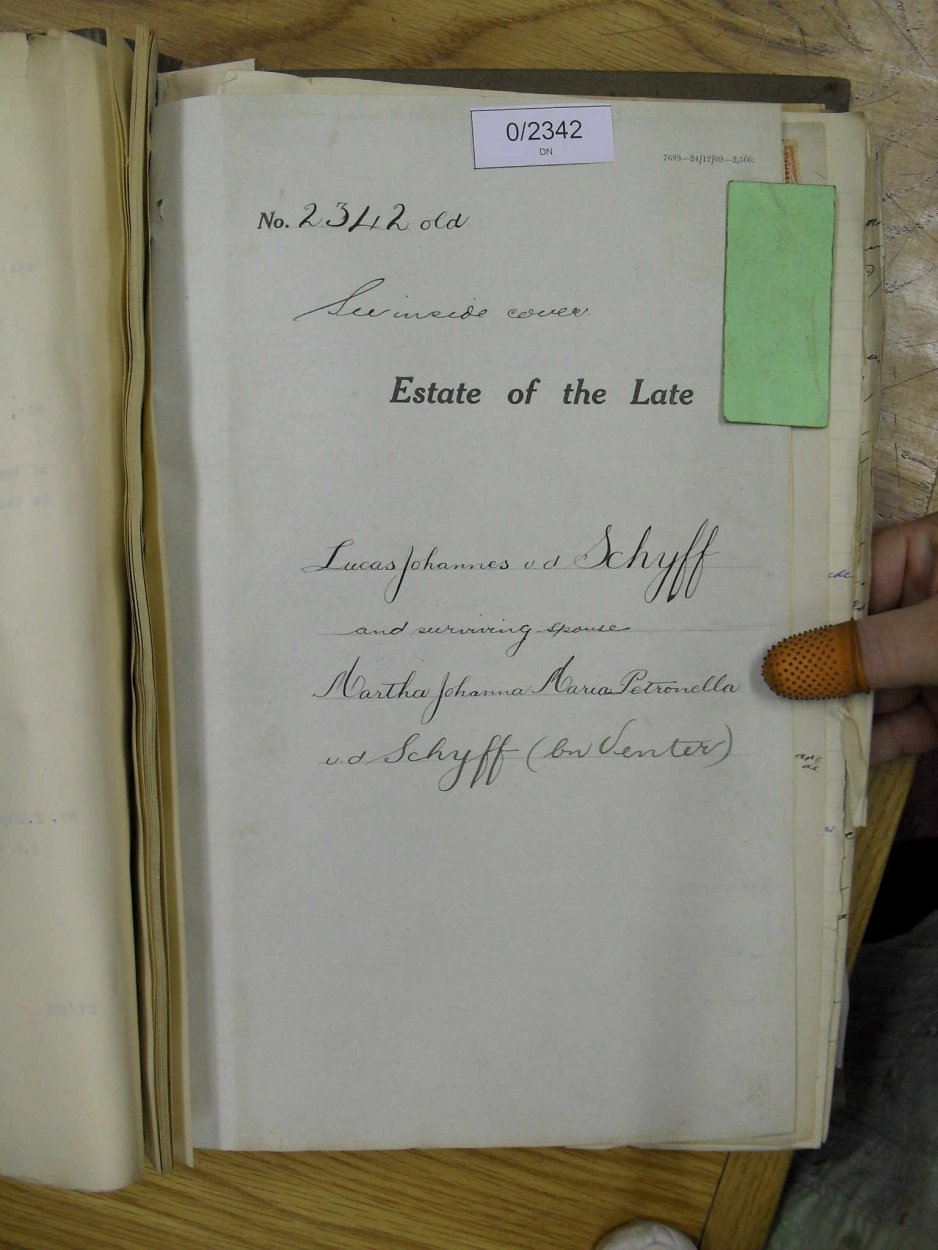 0/2342
DN
7689—24/12/09—2,500.
No. 2342 old
See inside cover
Estate of the Late
Lucas Johannes v d Schyff
and surviving spouse
Martha Johanna Maria Petronella
v d Schyff (bn Venter)